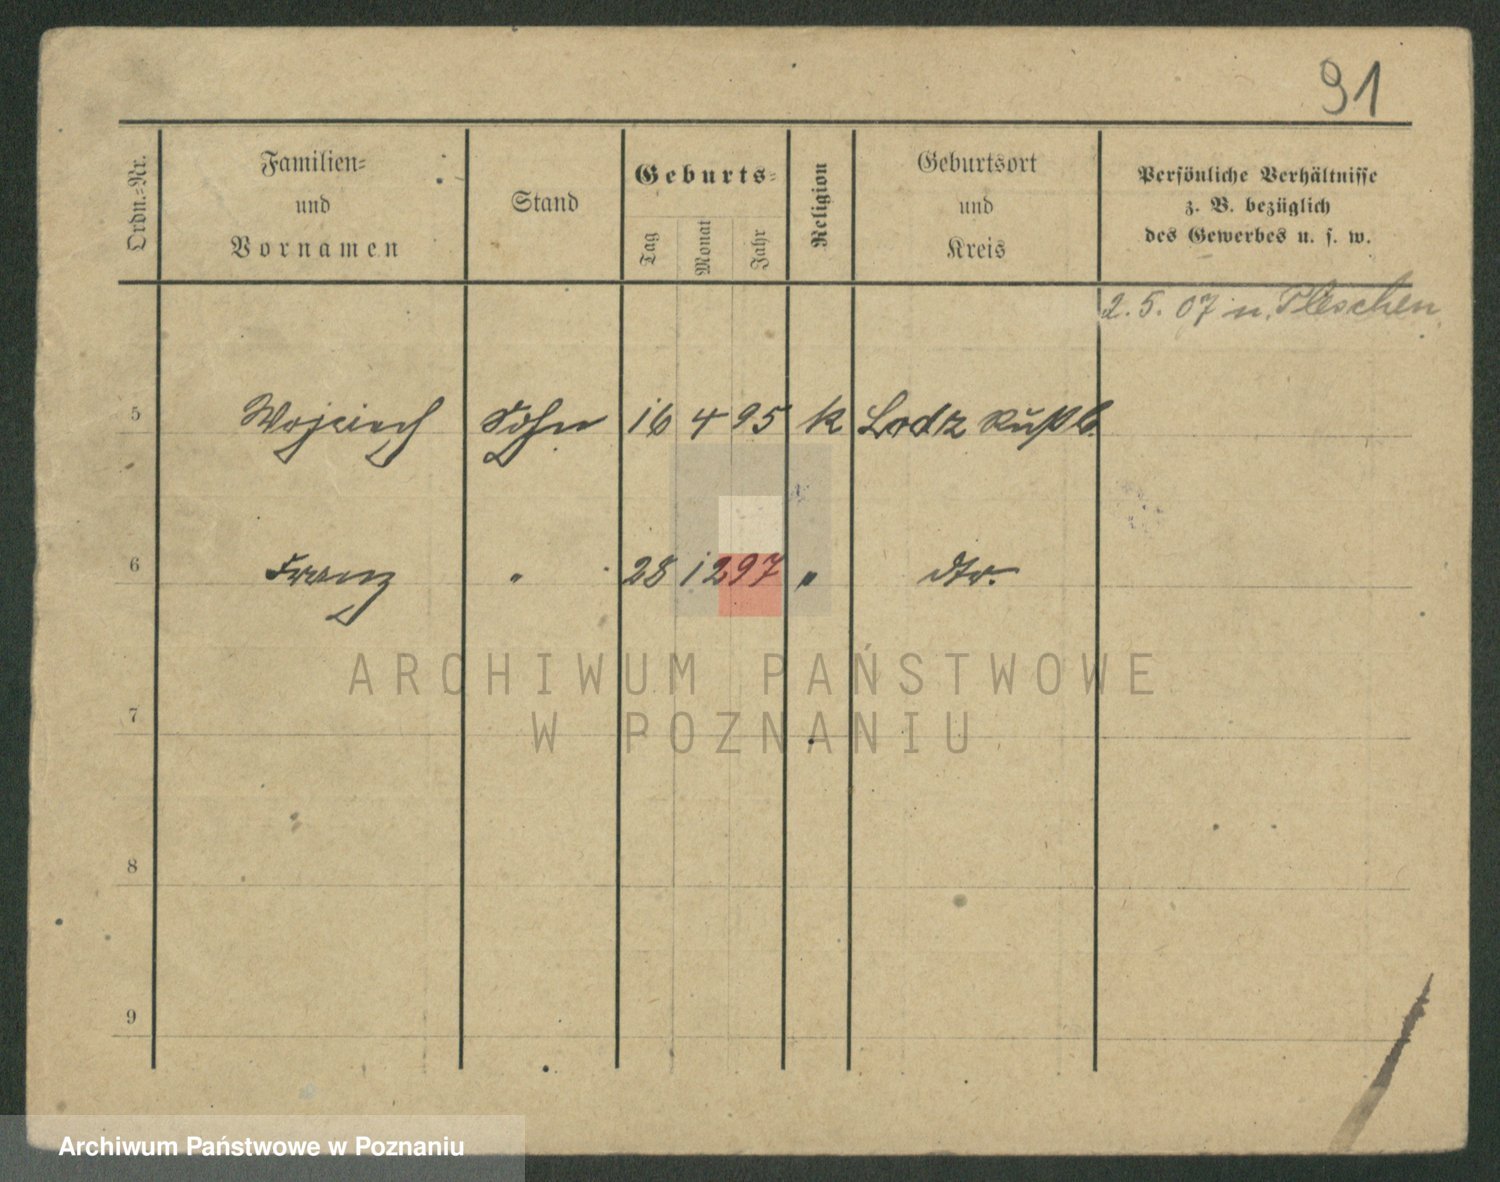 91
Ordn.-Nr.
Familien-
und
Vornamen
Stand
Geburts-
Tag
Monat
Jahr
Religion
Geburtsort
und
Kreis
Persönliche Verhältnisse
z. B. bezüglich
des Gewerbes u. s. w.
2.5.07 n. Pleschen
5 Wojciech Sohn 16 4 95 k Lodz Rußl.
6 Franz " 28 12 97 " dto.
ARCHIWUM PAŃSTWOWE
W POZNANIU
7
8
9
Archiwum Państwowe w Poznaniu